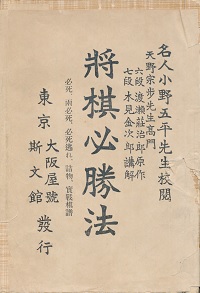 名人小野五平先生校閲
天野宗歩先生高門
六段 渡瀬莊治郎原作
七段 木見金次郎講解
將棋必勝法
必死、両必死、必死逃れ、詰物、實戰棋譜
東京 大阪屋號
斯文館 發行